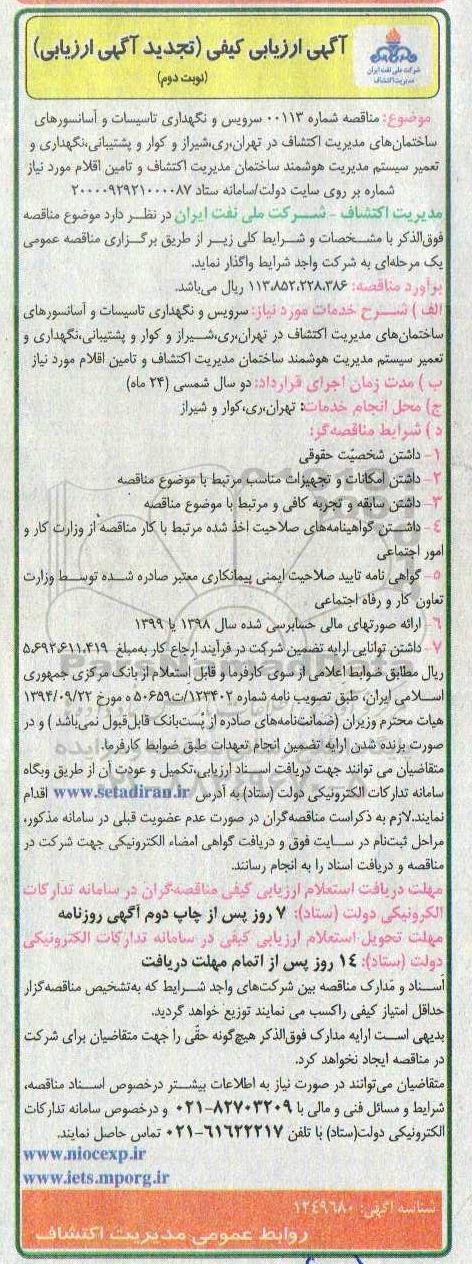 شرکت ملی نفت ایران
مدیریت اکتشاف
آگهی ارزیابی کیفی (تجدید آگهی ارزیابی)
(نوبت دوم)
موضوع: مناقصه شماره ۰۰۱۱۳ سرویس و نگهداری تاسیسات و آسانسورهای
ساختمان‌های مدیریت اکتشاف در تهران،ری،شیراز و کوار و پشتیبانی،نگهداری و
تعمیر سیستم مدیریت هوشمند ساختمان مدیریت اکتشاف و تامین اقلام مورد نیاز
شماره بر روی سایت دولت/سامانه ستاد ۲۰۰۰۰۹۲۹۲۱۰۰۰۰۸۷
مدیریت اکتشاف - شرکت ملی نفت ایران در نظر دارد موضوع مناقصه
فوق‌الذکر با مشخصات و شرایط کلی زیر از طریق برگزاری مناقصه عمومی
یک مرحله‌ای به شرکت واجد شرایط واگذار نماید.
برآورد مناقصه: ۱۱۳،۸۵۲،۲۲۸،۳۸۶ ریال می‌باشد.
الف ) شرح خدمات مورد نیاز: سرویس و نگهداری تاسیسات و آسانسورهای
ساختمان‌های مدیریت اکتشاف در تهران،ری،شیراز و کوار و پشتیبانی،نگهداری و
تعمیر سیستم مدیریت هوشمند ساختمان مدیریت اکتشاف و تامین اقلام مورد نیاز
ب ) مدت زمان اجرای قرارداد: دو سال شمسی (۲۴ ماه)
ج) محل انجام خدمات: تهران،ری،کوار و شیراز
د ) شرایط مناقصه‌گر:
۱- داشتن شخصیّت حقوقی
۲- داشتن امکانات و تجهیزات مناسب مرتبط با موضوع مناقصه
۳- داشتن سابقه و تجربه کافی و مرتبط با موضوع مناقصه
۴- داشتن گواهینامه‌های صلاحیت اخذ شده مرتبط با کار مناقصه از وزارت کار و
امور اجتماعی
۵- گواهی نامه تایید صلاحیت ایمنی پیمانکاری معتبر صادره شده توسط وزارت
تعاون کار و رفاه اجتماعی
۶- ارائه صورتهای مالی حسابرسی شده سال ۱۳۹۸ یا ۱۳۹۹
۷- داشتن توانایی ارایه تضمین شرکت در فرآیند ارجاع کار به‌مبلغ ۵،۶۹۲،۶۱۱،۴۱۹
ریال مطابق ضوابط اعلامی از سوی کارفرما و قابل استعلام از بانک مرکزی جمهوری
اسلامی ایران، طبق تصویب نامه شماره ۱۲۳۴۰۲/ت۵۰۶۵۹ ه مورخ ۱۳۹۴/۰۹/۲۲
هیات محترم وزیران (ضمانت‌نامه‌های صادره از پُست‌بانک قابل‌قبول نمی‌باشد ) و در
صورت برنده شدن ارایه تضمین انجام تعهدات طبق ضوابط کارفرما.
متقاضیان می توانند جهت دریافت اسناد ارزیابی،تکمیل و عودت آن از طریق وبگاه
سامانه تدارکات الکترونیکی دولت (ستاد) به آدرس www.setadiran.ir اقدام
نمایند.لازم به ذکراست مناقصه‌گران در صورت عدم عضویت قبلی در سامانه مذکور،
مراحل ثبت‌نام در سایت فوق و دریافت گواهی امضاء الکترونیکی جهت شرکت در
مناقصه و دریافت اسناد را به انجام رسانند.
مهلت دریافت استعلام ارزیابی کیفی مناقصه‌گران در سامانه تدارکات
الکترونیکی دولت (ستاد): ۷ روز پس از چاپ دوم آگهی روزنامه
مهلت تحویل استعلام ارزیابی کیفی در سامانه تدارکات الکترونیکی
دولت (ستاد): ۱۴ روز پس از اتمام مهلت دریافت
اسناد و مدارک مناقصه بین شرکت‌های واجد شرایط که به‌تشخیص مناقصه‌گزار
حداقل امتیاز کیفی راکسب می نمایند توزیع خواهد گردید.
بدیهی است ارایه مدارک فوق‌الذکر هیچ‌گونه حقّی را جهت متقاضیان برای شرکت
در مناقصه ایجاد نخواهد کرد.
متقاضیان می‌توانند در صورت نیاز به اطلاعات بیشتر درخصوص اسناد مناقصه،
شرایط و مسائل فنی و مالی با ۸۲۷۰۳۲۰۹-۰۲۱ و درخصوص سامانه تدارکات
الکترونیکی دولت(ستاد) با تلفن ۶۱۶۲۲۲۱۷-۰۲۱ تماس حاصل نمایند.
www.niocexp.ir
www.iets.mporg.ir
شناسه آگهی: ۱۲۴۹۶۸۰
روابط عمومی مدیریت اکتشاف